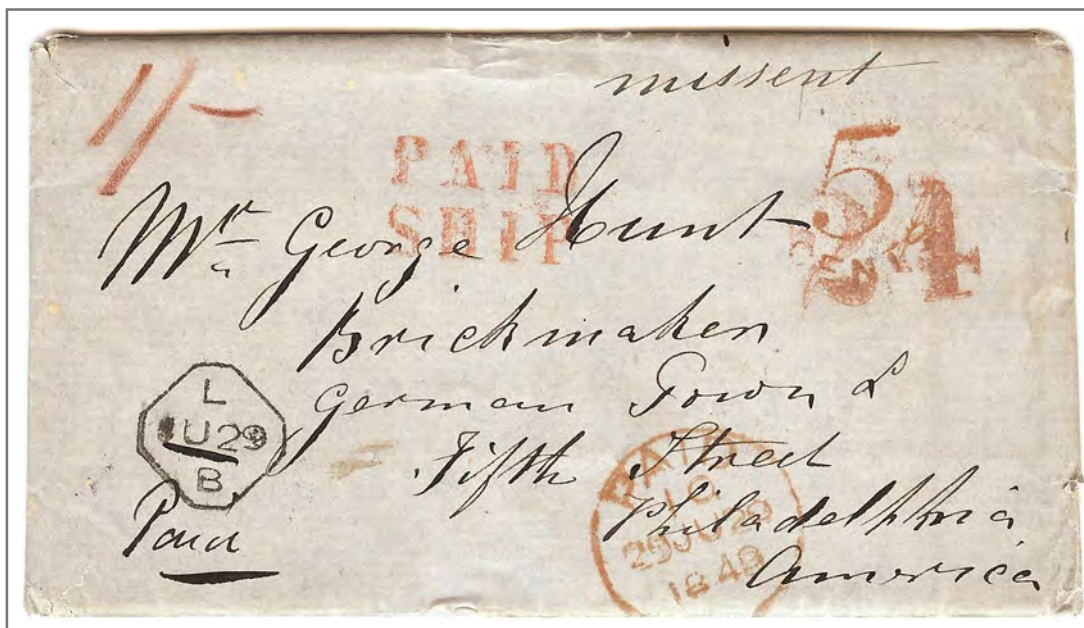 missent
1/-
PAID
SHIP
5
CENTS
24
Mr George Hunt
Brickmaker
German Town &
Fifth Street
Philadelphia
America
L
JU29
B
Paid
PAID
29JU29
1849